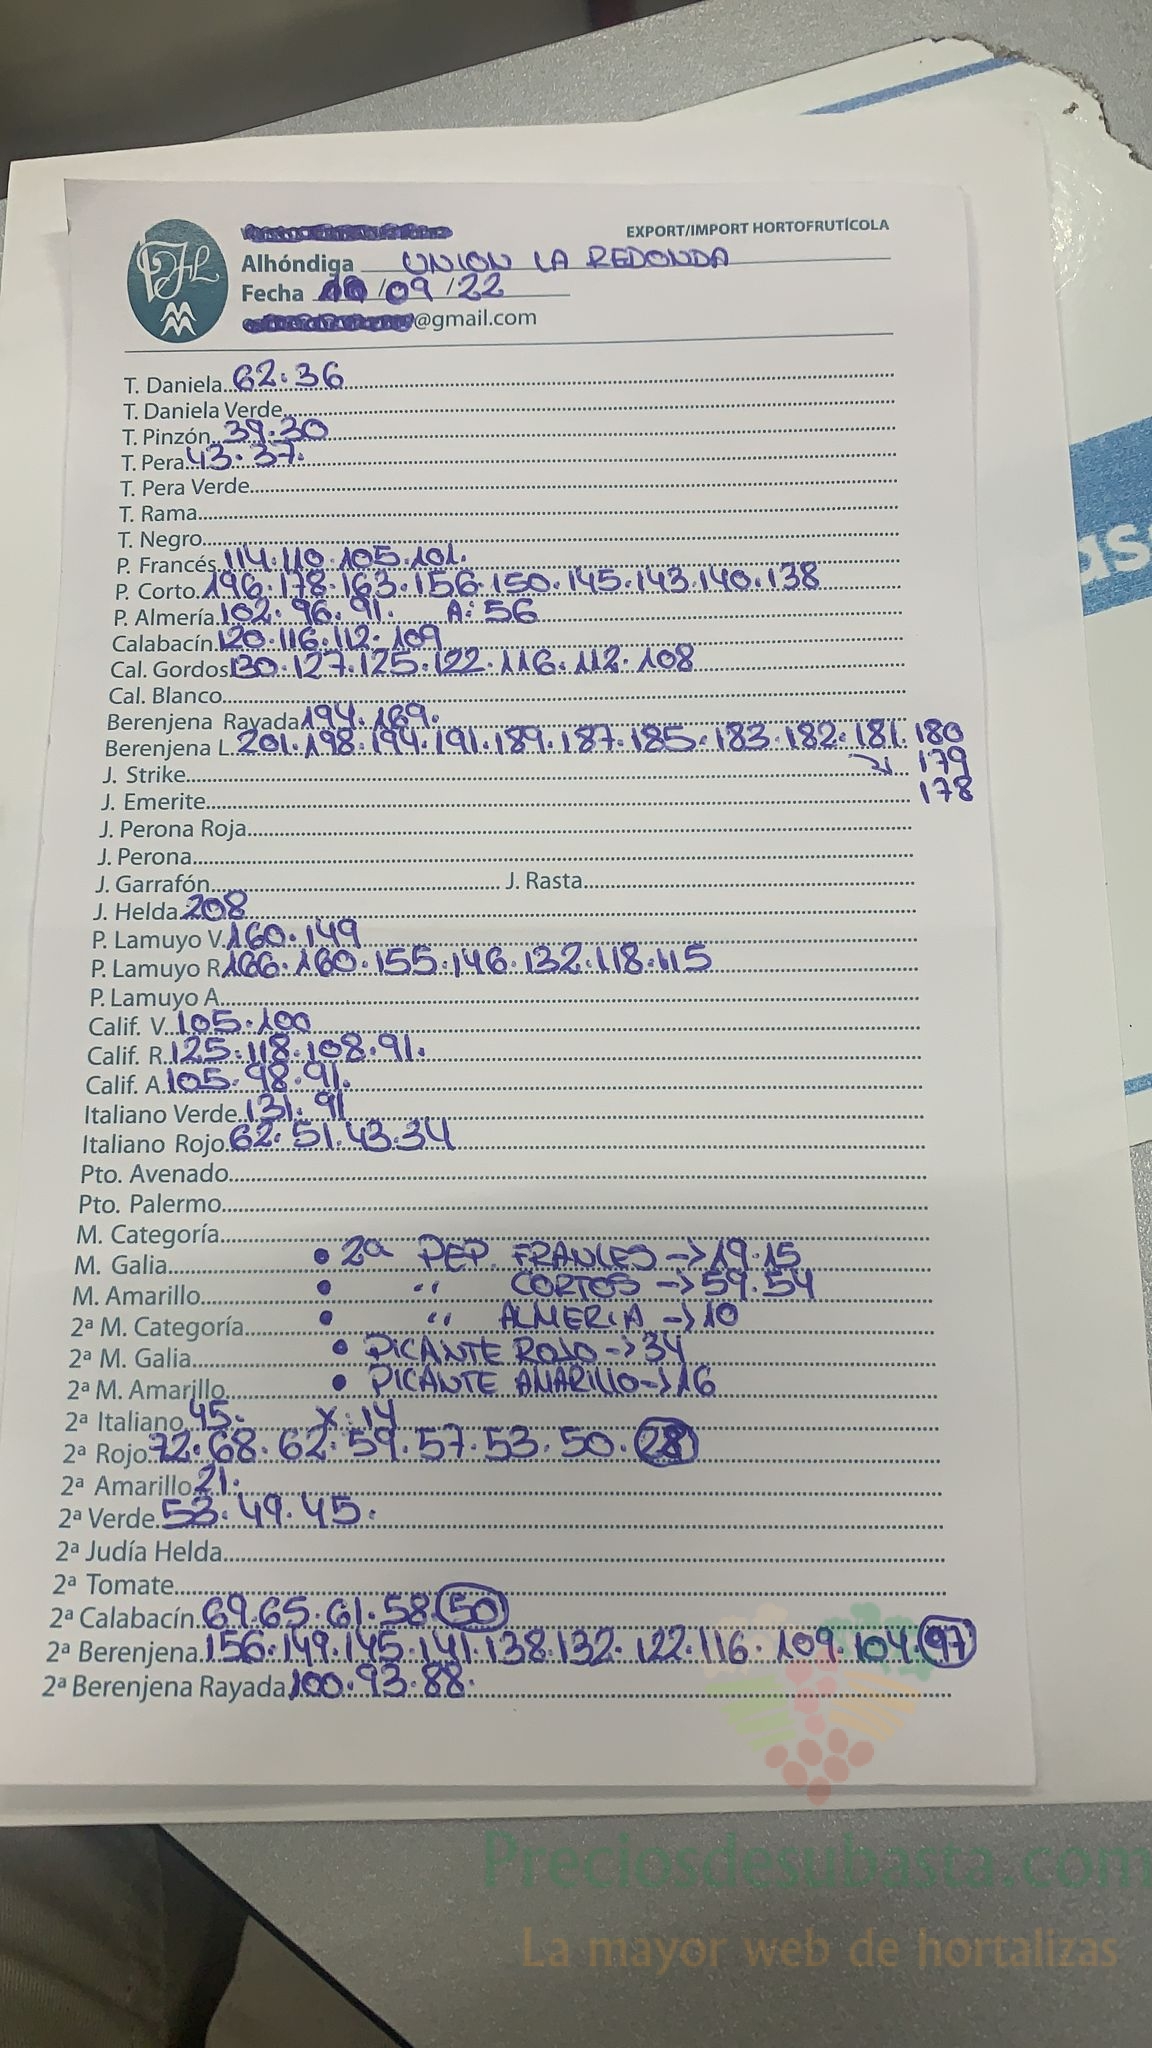 EXPORT/IMPORT HORTOFRUTÍCOLA
Alhóndiga UNION LA REDONDA
Fecha /09/22
@gmail.com
T. Daniela 62.36
T. Daniela Verde
T. Pinzón 39.30
T. Pera 43.37.
T. Pera Verde
T. Rama
T. Negro
P. Francés 114.110.105.101.
P. Corto 196.178.163.156.150.145.143.140.138
P. Almería 102.96.91. A:56
Calabacín 120.116.112.109
Cal. Gordos 130.127.125.122.116.112.108
Cal. Blanco
Berenjena Rayada 194.169.
Berenjena L. 201.198.194.191.189.187.185.183.182.181.180
J. Strike 179
J. Emerite 178
J. Perona Roja
J. Perona
J. Garrafón J. Rasta
J. Helda 208
P. Lamuyo V. 160.149
P. Lamuyo R. 166.160.155.146.132.118.115
P. Lamuyo A
Calif. V. 105.100
Calif. R. 125.118.108.91.
Calif. A. 105.98.91.
Italiano Verde 131.91
Italiano Rojo 62.51.43.34
Pto. Avenado
Pto. Palermo
M. Categoría
M. Galia • 2ª PEP. FRANCES -> 19.15
M. Amarillo • " CORTOS -> 59.54
2ª M. Categoría • " ALMERIA -> 10
2ª M. Galia • PICANTE ROJO -> 34
2ª M. Amarillo • PICANTE AMARILLO -> 16
2ª Italiano 45. X:14
2ª Rojo 72.68.62.59.57.53.50.28
2ª Amarillo 21.
2ª Verde 53.49.45.
2ª Judía Helda
2ª Tomate
2ª Calabacín 69.65.61.58.50
2ª Berenjena 156.149.145.141.138.132.122.116.109.104.97
2ª Berenjena Rayada 100.93.88.
Preciosdesubasta.com
La mayor web de hortalizas